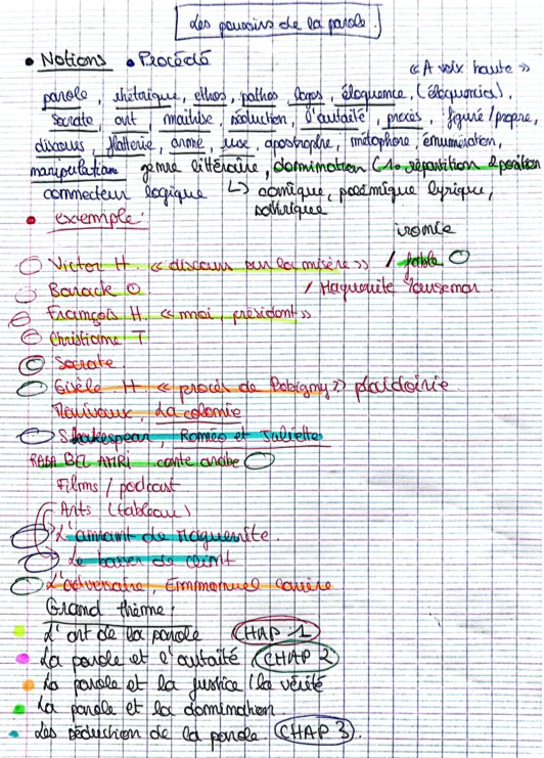 Les pouvoirs de la parole.
• Notions • Procédé
« A voix haute »
parole, rhétorique, ethos, pathos logos, éloquence, (éloquentia),
Socrate, art, maîtrise, séduction, l'autorité, procès, figuré/propre,
discours, flatterie, arme, ruse, apostrophe, métaphore, énumération,
manipulation genre littéraire, domination (1. répartition 2 position
connecteur logique ↳ comique, polémique lyrique,
satirique
• exemple:
ironie
Victor H. « discours sur la misère » / fable
Barack O / Marguerite
François H. « moi, président »
Christiane T
Socrate.
Gisèle. H « procès de Bobigny » plaidoirie.
Marivaux, La colonie
Shakespear, Roméo et Juliette
BEL AMRI conte arabe
Films / podcast
Arts (tableau)
L'amant de Maguerite.
Le baiser de climt
L'adversaire, Emmanuel carrère
Grand thème:
L'art de la parole CHAP 1
La parole et l'autorité CHAP 2
La parole et la justice (la vérité
La parole et la domination.
Les séduction de la parole. CHAP 3.